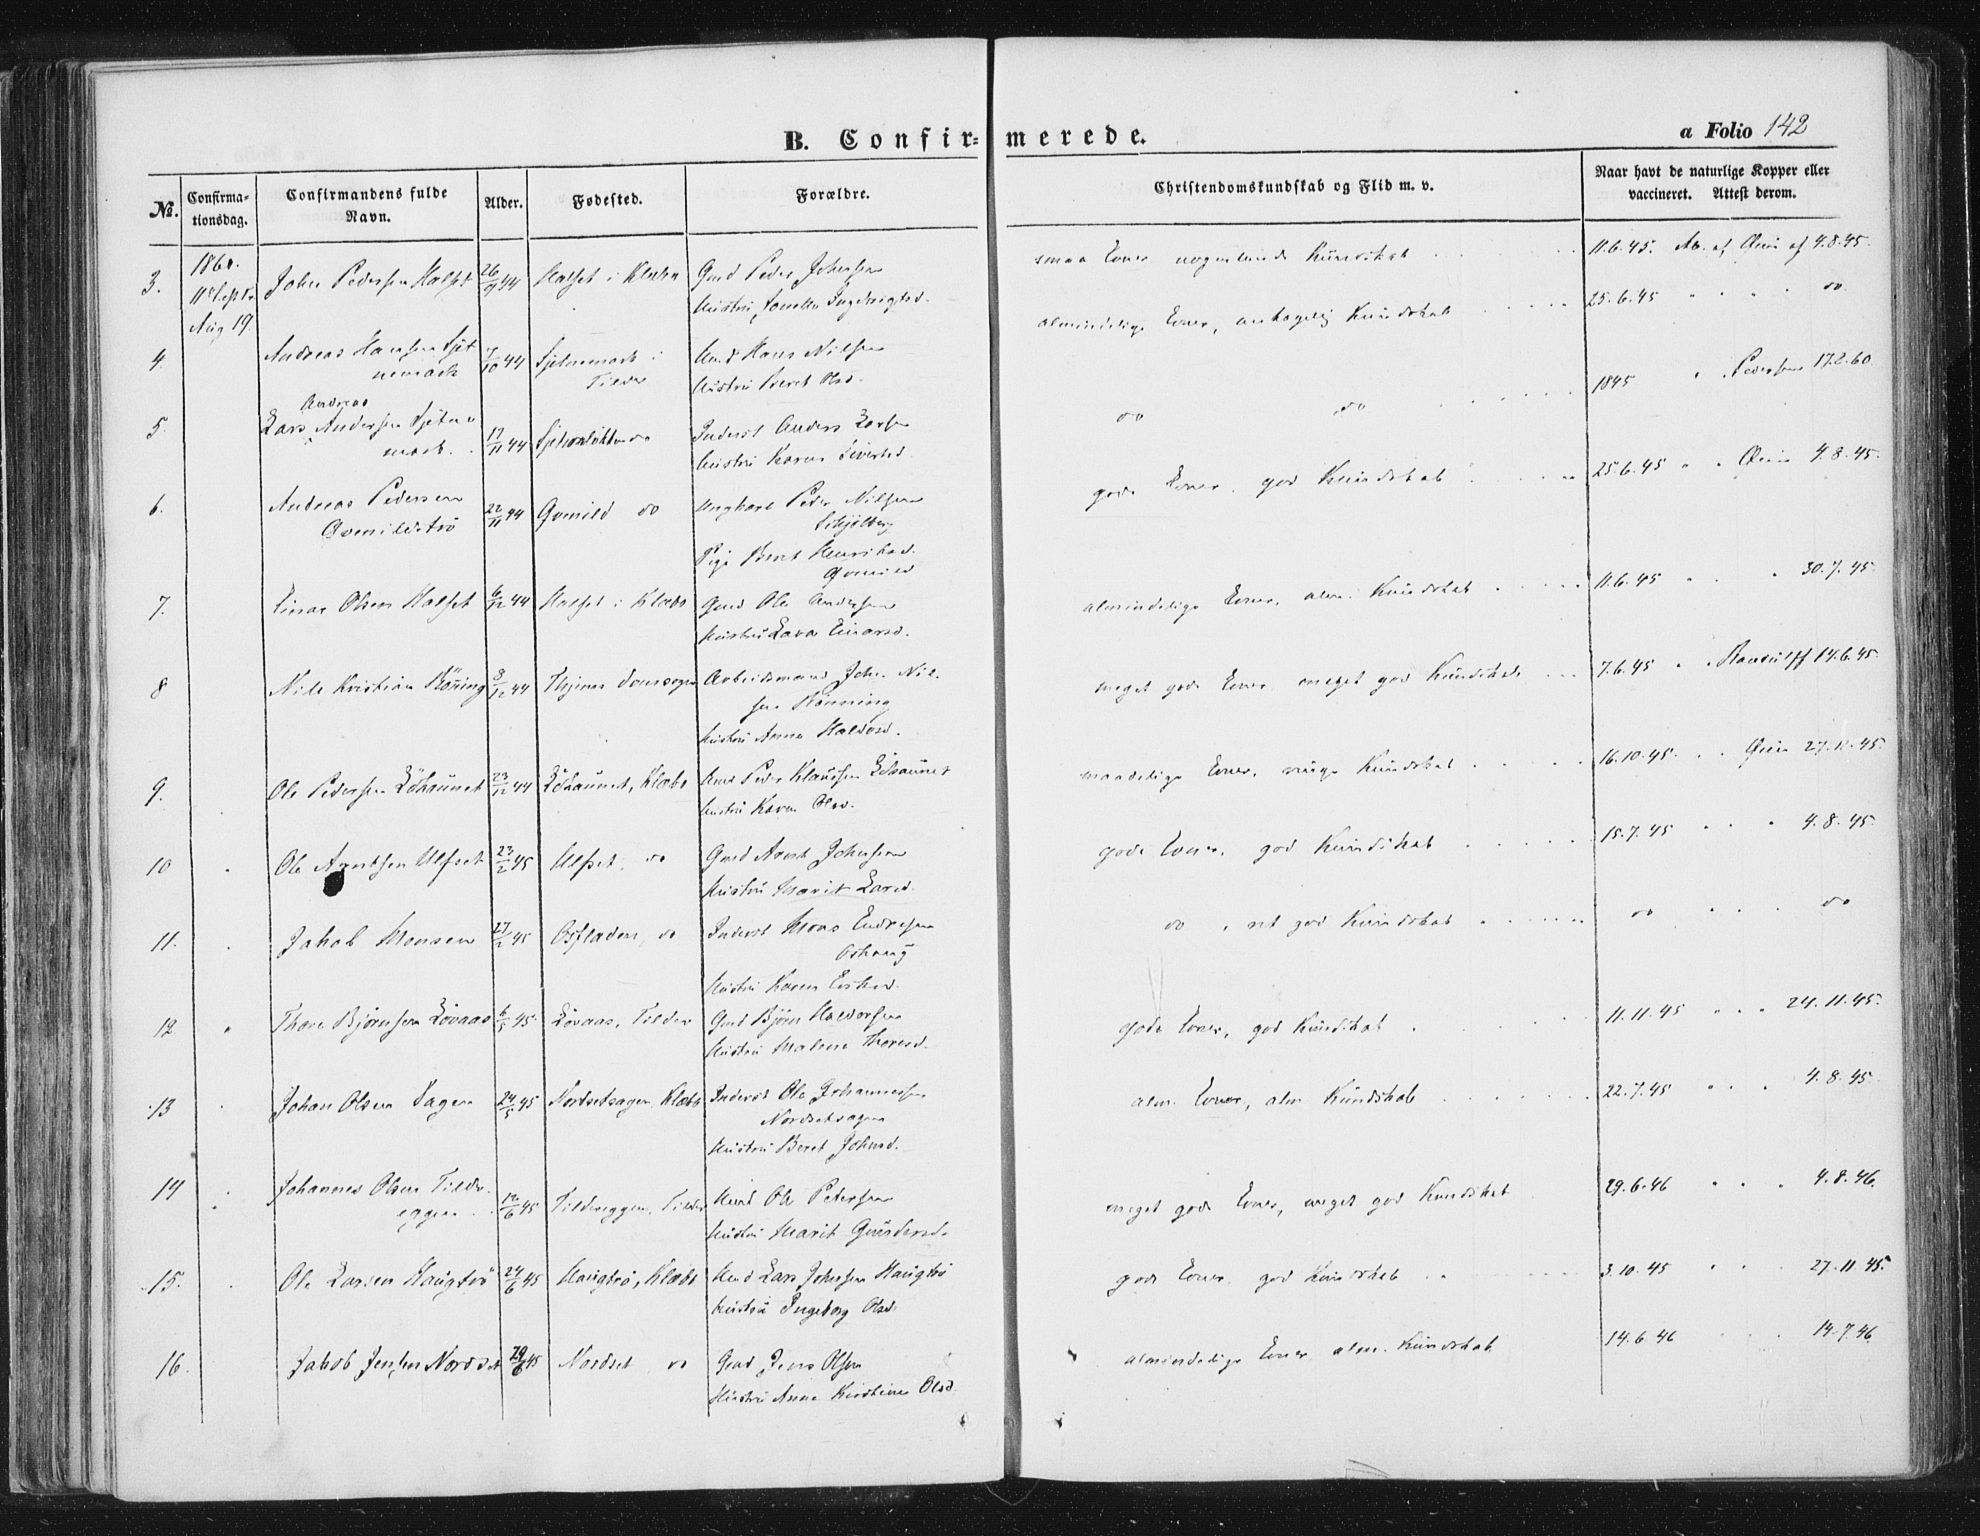 B. Confirmerede.
a Folio 142
№.
Confirmationsdag.
Confirmandens fulde Navn.
Alder.
Fødested.
Forældre.
Christendomskundskab og Flid m. v.
Naar havt de naturlige Kopper eller vaccineret. Attest derom.
3. 1860. Aug 19 John Pedersen Halset 26/9 44 Halset i Klæbu Gmd Peder Johnsen
Hustru Ingebrigtsd.
smaa Evner nogenlunde Kundskab 11.6.45. At. af 4.8.45.
4. Andreas Hansen Sjetnemark 7/10 44 Sjetnemark i Tilder Hmd Hans Nilsen
Hustru Beret Olsd.
almindelige Evner, antagelig Kundskab 25.6.45 do
5. Andreas
Lars Andersen Sjetnemark 17/11 44 do Inderst Anders Larsen
Hustru Karen Sivertsd.
do do 1845 Pedersen 17.2.60
6. Andreas Pedersen Qvenildstrø 22/11 44 Qvenild do Ungkarl Peder Nilsen
Pige Beret Henriksd. Qvenild
gode Evner, god Kundskab 25.6.45 4.8.45.
7. Einar Olsen Halset 6/12 44 Halset i Klæbu Gmd Ole Andersen
Hustru Lava Einarsd.
almindelige Evner, alm. Kundskab 11.6.45 30.7.45.
8 Nils Kristian Rönning 8/12 44 Arbeidsmand John Nilsen Rönning
Hustru Anna Haldosd.
meget gode Evner meget god Kundskab 7.6.45 14.6.45.
9. Ole Pedersen Löhaunet 23/12 44 Löhaunet, Klæbu Hmd Peder Klausen Löhaunet
Hustru Karen Olsd.
maadelige Evner, ringe Kundskab 16.10.45. 27.11.45.
10 Ole Arntsen Ulset 23/2 45 Ulset, do Gmd Arnt Johnsen
Hustru Marit Larsd.
gode Evner, god Kundskab 15.7.45 4.8.45.
11. Jakob Monsen 27/2 45 Osfladen, do Inderst Mons Endresen Oshaug
Hustru Karen
do, ret god Kundskab do do
12 Thore Björnsen Lövaas 6/5 45 Lövaas, Tilder Gmd Björn Haldorsen
Hustru Malena Thoresd.
gode Evner, god Kundskab 11.11.45 24.11.45.
13 Johan Olsen Sagen 24/5 45 Nordsetsagen, Klæbu Inderst Ole Johannesen Nordsetsagen
Hustru Beret Johnsd.
alm. Evner, alm Kundskab 22.7.45 4.8.45.
14 Johannes Olsen Tildereggen 12/6 45 Tildereggen, Tilder Hmd Ole Petersen
Hustru Marit Gundersd.
meget gode Evner, meget god Kundskab 29.6.46 4.8.46.
15. Ole Larsen Haugtrö 24/6 45 Haugtrö, Klæbu Hmd Lars Johnsen Haugtrö
Hustru Ingeborg Olsd.
gode Evner, god Kundskab 3.10.45 27.11.45.
16. Jakob Jensen Nordset 29/6 45 Nordset do Gmd Jens Olsen
Hustru Anne Kirstine Olsd.
almindelige Evner alm. Kundskab 14.6.46 14.7.46.